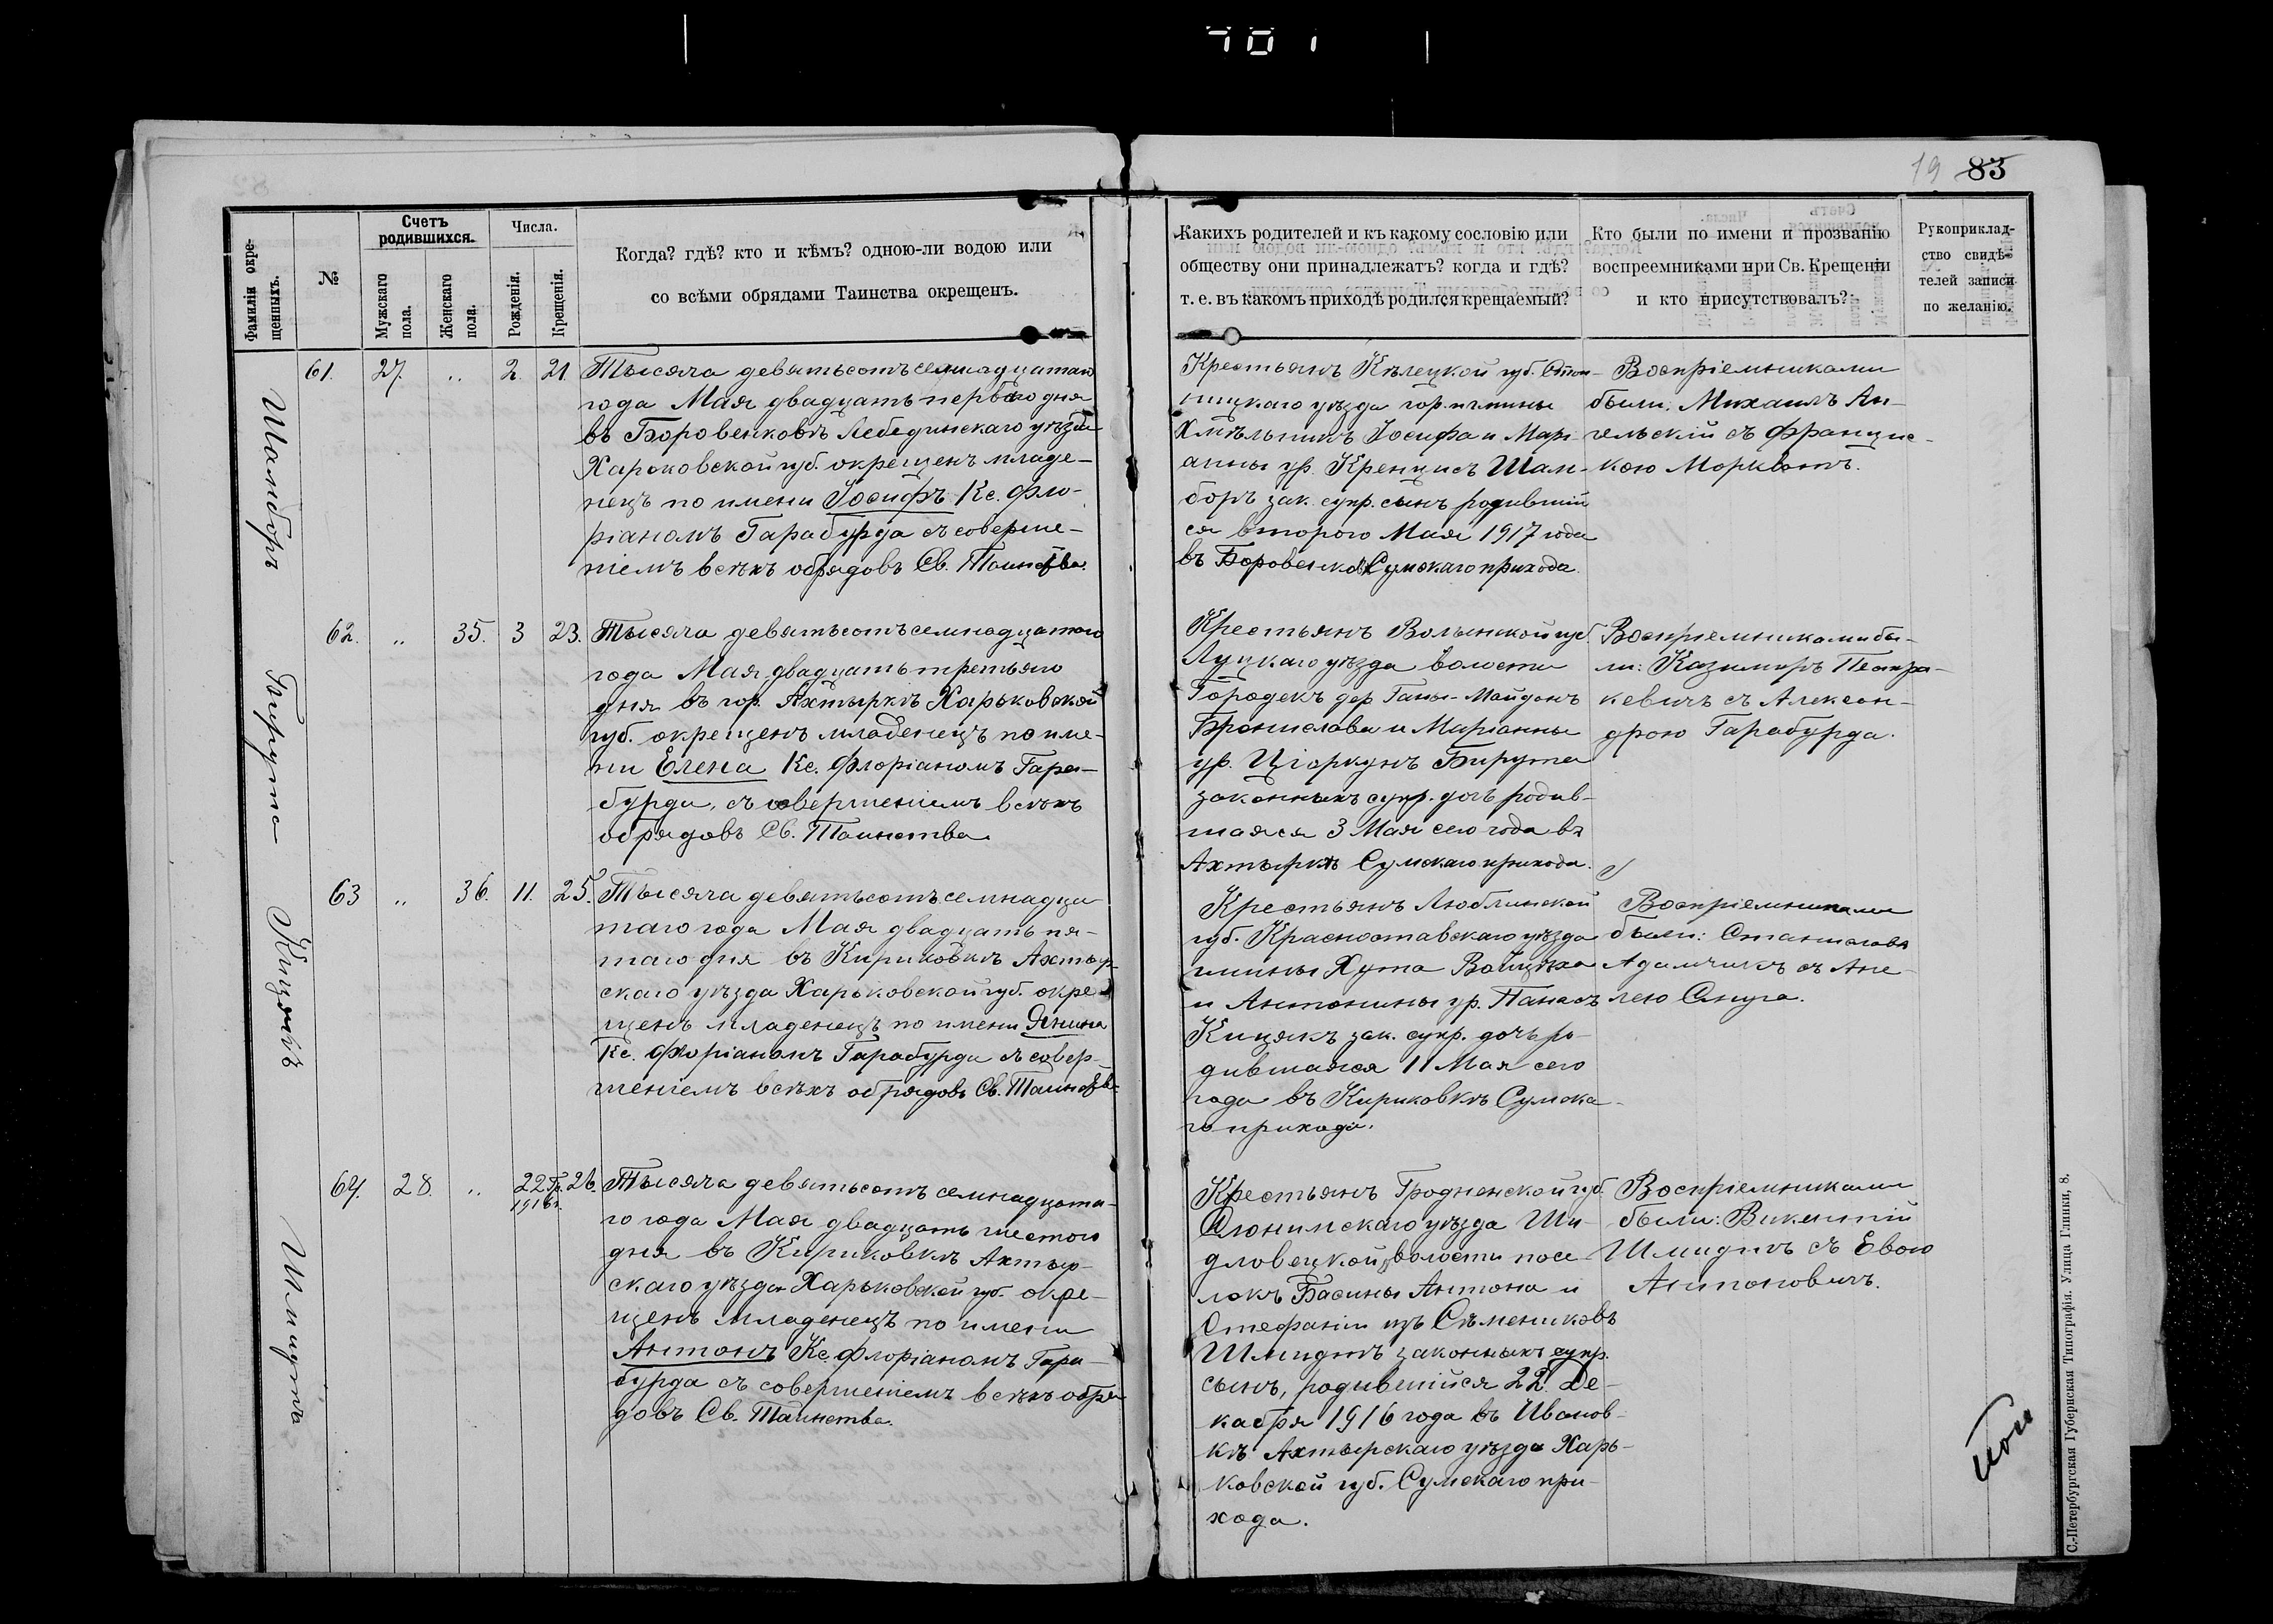 701
19 83
Фамиліи окре-
щенныхъ.
№
Счетъ
родившихся.
Мужскаго
пола.
Женскаго
пола.
Числа.
Рожденія.
Крещенія.
Когда? гдѣ? кто и кѣмъ? одною-ли водою или
со всѣми обрядами Таинства окрещенъ.
Какихъ родителей и къ какому сословію или
обществу они принадлежатъ? когда и гдѣ?
т. е. въ какомъ приходѣ родился крещаемый?
Кто были по имени и прозванію
воспреемниками при Св. Крещеніи
и кто присутствовалъ?
Рукоприклад-
ство свидѣ-
телей записи
по желанію.
Шамборъ
61. 27. „ 2. 21.
Тысяча девятьсотъ семнадцатаго
года Мая двадцать перваго дня
въ Боровенковѣ Лебединскаго уѣзда
Харьковской губ. окрещенъ младе-
нецъ по имени Іосифъ Кс. Фло-
ріаномъ Гарабурда съ соверше-
ніемъ всѣхъ обрядовъ Св. Таинства.
Крестьянъ Кѣлецкой губ. Стоп-
ницкаго уѣзда гор. гмины
Хмѣльникъ Іосифа и Марі-
анны ур. Кренцисъ Шам-
боръ зак. супр. сынъ родивший
ся второго Мая 1917 года
въ Боровенкѣ Сумскаго прихода.
Воспріемниками
были: Михаилъ Ан-
гельскій съ Францис-
кою Морквотъ.
Бирута
62. „ 35. 3 23.
Тысяча девятьсотъ семнадцатаго
года Мая двадцать третьяго
дня въ гор. Ахтыркѣ Харьковской
губ. окрещенъ младенецъ по име-
ни Елена Кс. Флоріаномъ Гара-
бурда, съ совершеніемъ всѣхъ
обрядовъ Св. Таинства.
Крестьянъ Волынской губ.
Луцкаго уѣзда волости
Городекъ дер. Ганы-Майданъ
Брониславa и Маріанны
ур. Ціоркунъ Бирута
законныхъ супр. дочь родив-
шаяся 3 Мая сего года въ
Ахтыркѣ Сумскаго прихода.
Воспріемниками бы-
ли: Казимиръ Петра-
кевичъ съ Алексан-
дрою Гарабурда.
Кицякъ
63 „ 36. 11. 25.
Тысяча девятьсотъ семнадца-
таго года Мая двадцать пя-
таго дня въ Кириковкѣ Ахтыр-
скаго уѣзда Харьковской губ. окре-
щенъ младенецъ по имени Янина
Кс. Флоріаномъ Гарабурда съ совер-
шеніемъ всѣхъ обрядовъ Св. Таинства.
Крестьянъ Люблинской
губ. Красноставскаго уѣзда
гмины Хута Войцѣха
и Антонины ур. Панасъ
Кицякъ зак. супр. дочь ро-
дившаяся 11 Мая сего
года въ Кириковкѣ Сумска-
го прихода.
Воспріемниками
были: Станиславъ
Адамчикъ съ Ане-
лею Снуга.
Шмидтъ
64. 28. „ 22 Дек. 26.
1916 г.
Тысяча девятьсотъ семнадцата-
го года Мая двадцать шестого
дня въ Кириковкѣ Ахтыр-
скаго уѣзда Харьковской губ. окре-
щенъ младенецъ по имени
Антонъ Кс. Флоріаномъ Гара-
бурда съ совершеніемъ всѣхъ обря-
довъ Св. Таинства.
Крестьянъ Гродненской губ.
Слонимскаго уѣзда Ши-
дловецкой волости посе-
локъ Басины Антона и
Стефаніи изъ Сѣмениковъ
Шмидтъ законныхъ супр.
сынъ, родившійся 22 Де-
кабря 1916 года въ Иванов-
кѣ Ахтырскаго уѣзда Харь-
ковской губ. Сумскаго при-
хода.
Воспріемниками
были: Викентій
Шмидтъ съ Евою
Антоновичъ.
С.-Петербургская Губернская Типографія. Улица Глинки, 8.